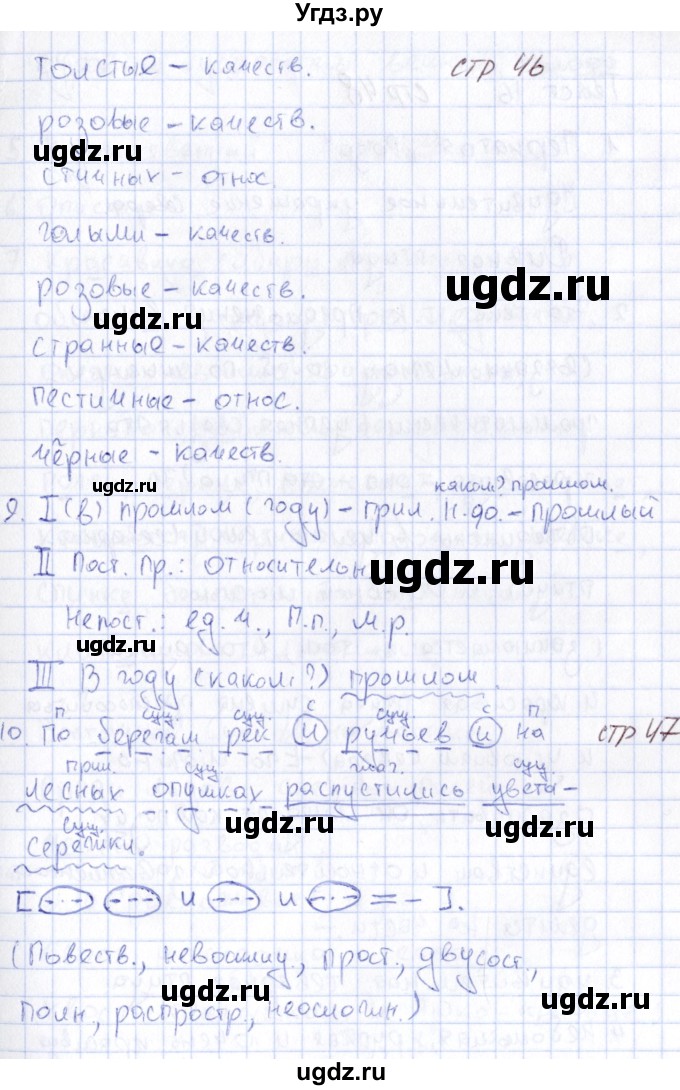 Угдз.ру
толстые – качеств. стр 46
розовые – качеств.
ugdz.ru
стичных – относ. ugdz.ru
голыми – качеств.
ugdz.ru
розовые – качеств.
ugdz.ru
странные – качеств.
ugdz.ru
пестичные – относ.
чёрные – качеств.
ugdz.ru
каком? прошлом.
9. I (в) прошлом (году) – прил. Н.ф. – прошлый
II Пост. пр.: относительн
ugdz.ru
Непост.: ед.ч., П.п., м.р.
ugdz.ru
III В году (каком?) прошлом.
п. сущ. сущ. с сущ. с п.
10. По берегам рек и ручьев и на стр 47
прил. сущ. глаг. сущ.
лесных опушках распустились цвета-
сущ. ugdz.ru ugdz.ru
сережки.
[ и и = – ].
ugdz.ru
(Повеств., невосклиц., прост., двусост.,
ugdz.ru ugdz.ru
полн., распростр., неосложн.)
ugdz.ru